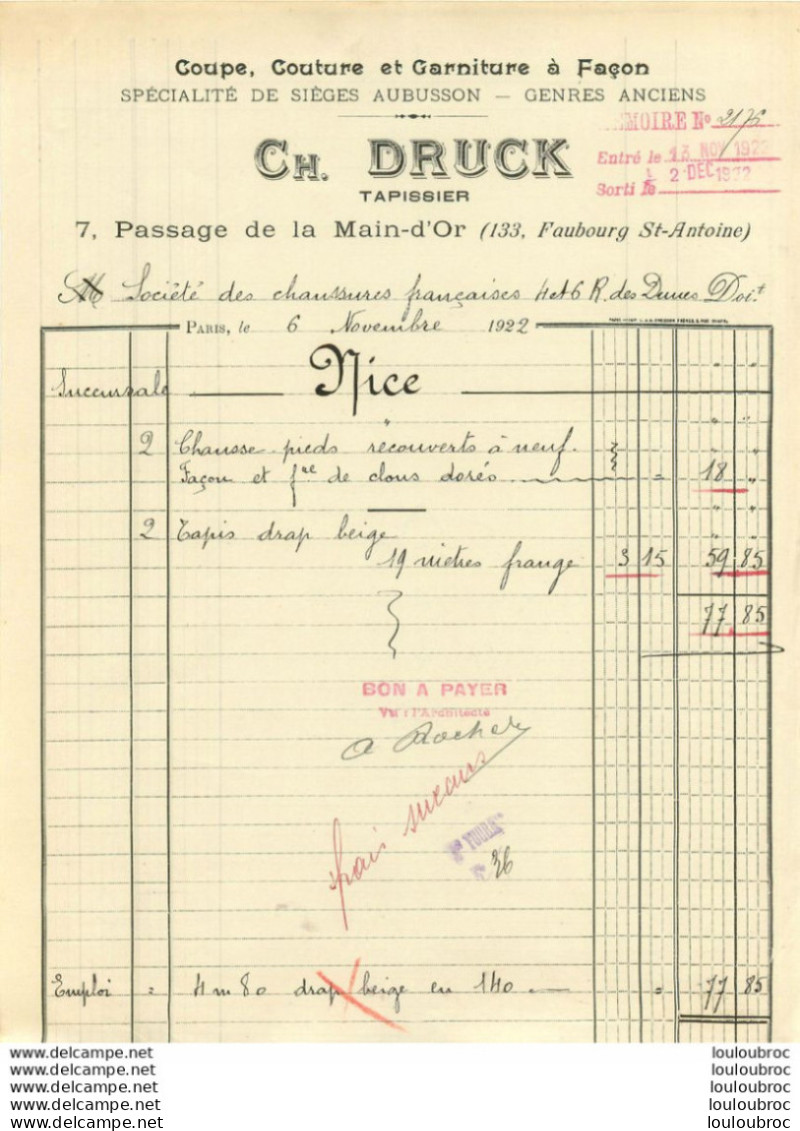 Coupe, Couture et Garniture à Façon
SPÉCIALITÉ DE SIÈGES AUBUSSON — GENRES ANCIENS
MOIRE N° 2175
CH. DRUCK
Entré le 13 NOV 1922
TAPISSIER
Sorti le 2 DEC 1922
7, Passage de la Main-d'Or (133, Faubourg St-Antoine)
M Société des chaussures françaises 4 et 6 R. des Dunes Doit
PARIS, le 6 Novembre 1922
Succursale Nice
2 Chausse-pieds recouverts à neuf.
Façon et fre de clous dorés = 18 "
2 Tapis drap beige
19 mètres frange 3 15 59 85
77 85
BON A PAYER
Vu : l'Architecte
A Rocher
frais
36
Emploi = 4 m 80 drap beige en 140 — = 77 85
www.delcampe.net louloubroc
www.delcampe.net louloubroc
www.delcampe.net louloubroc
www.delcampe.net louloubroc
www.delcampe.net louloubroc